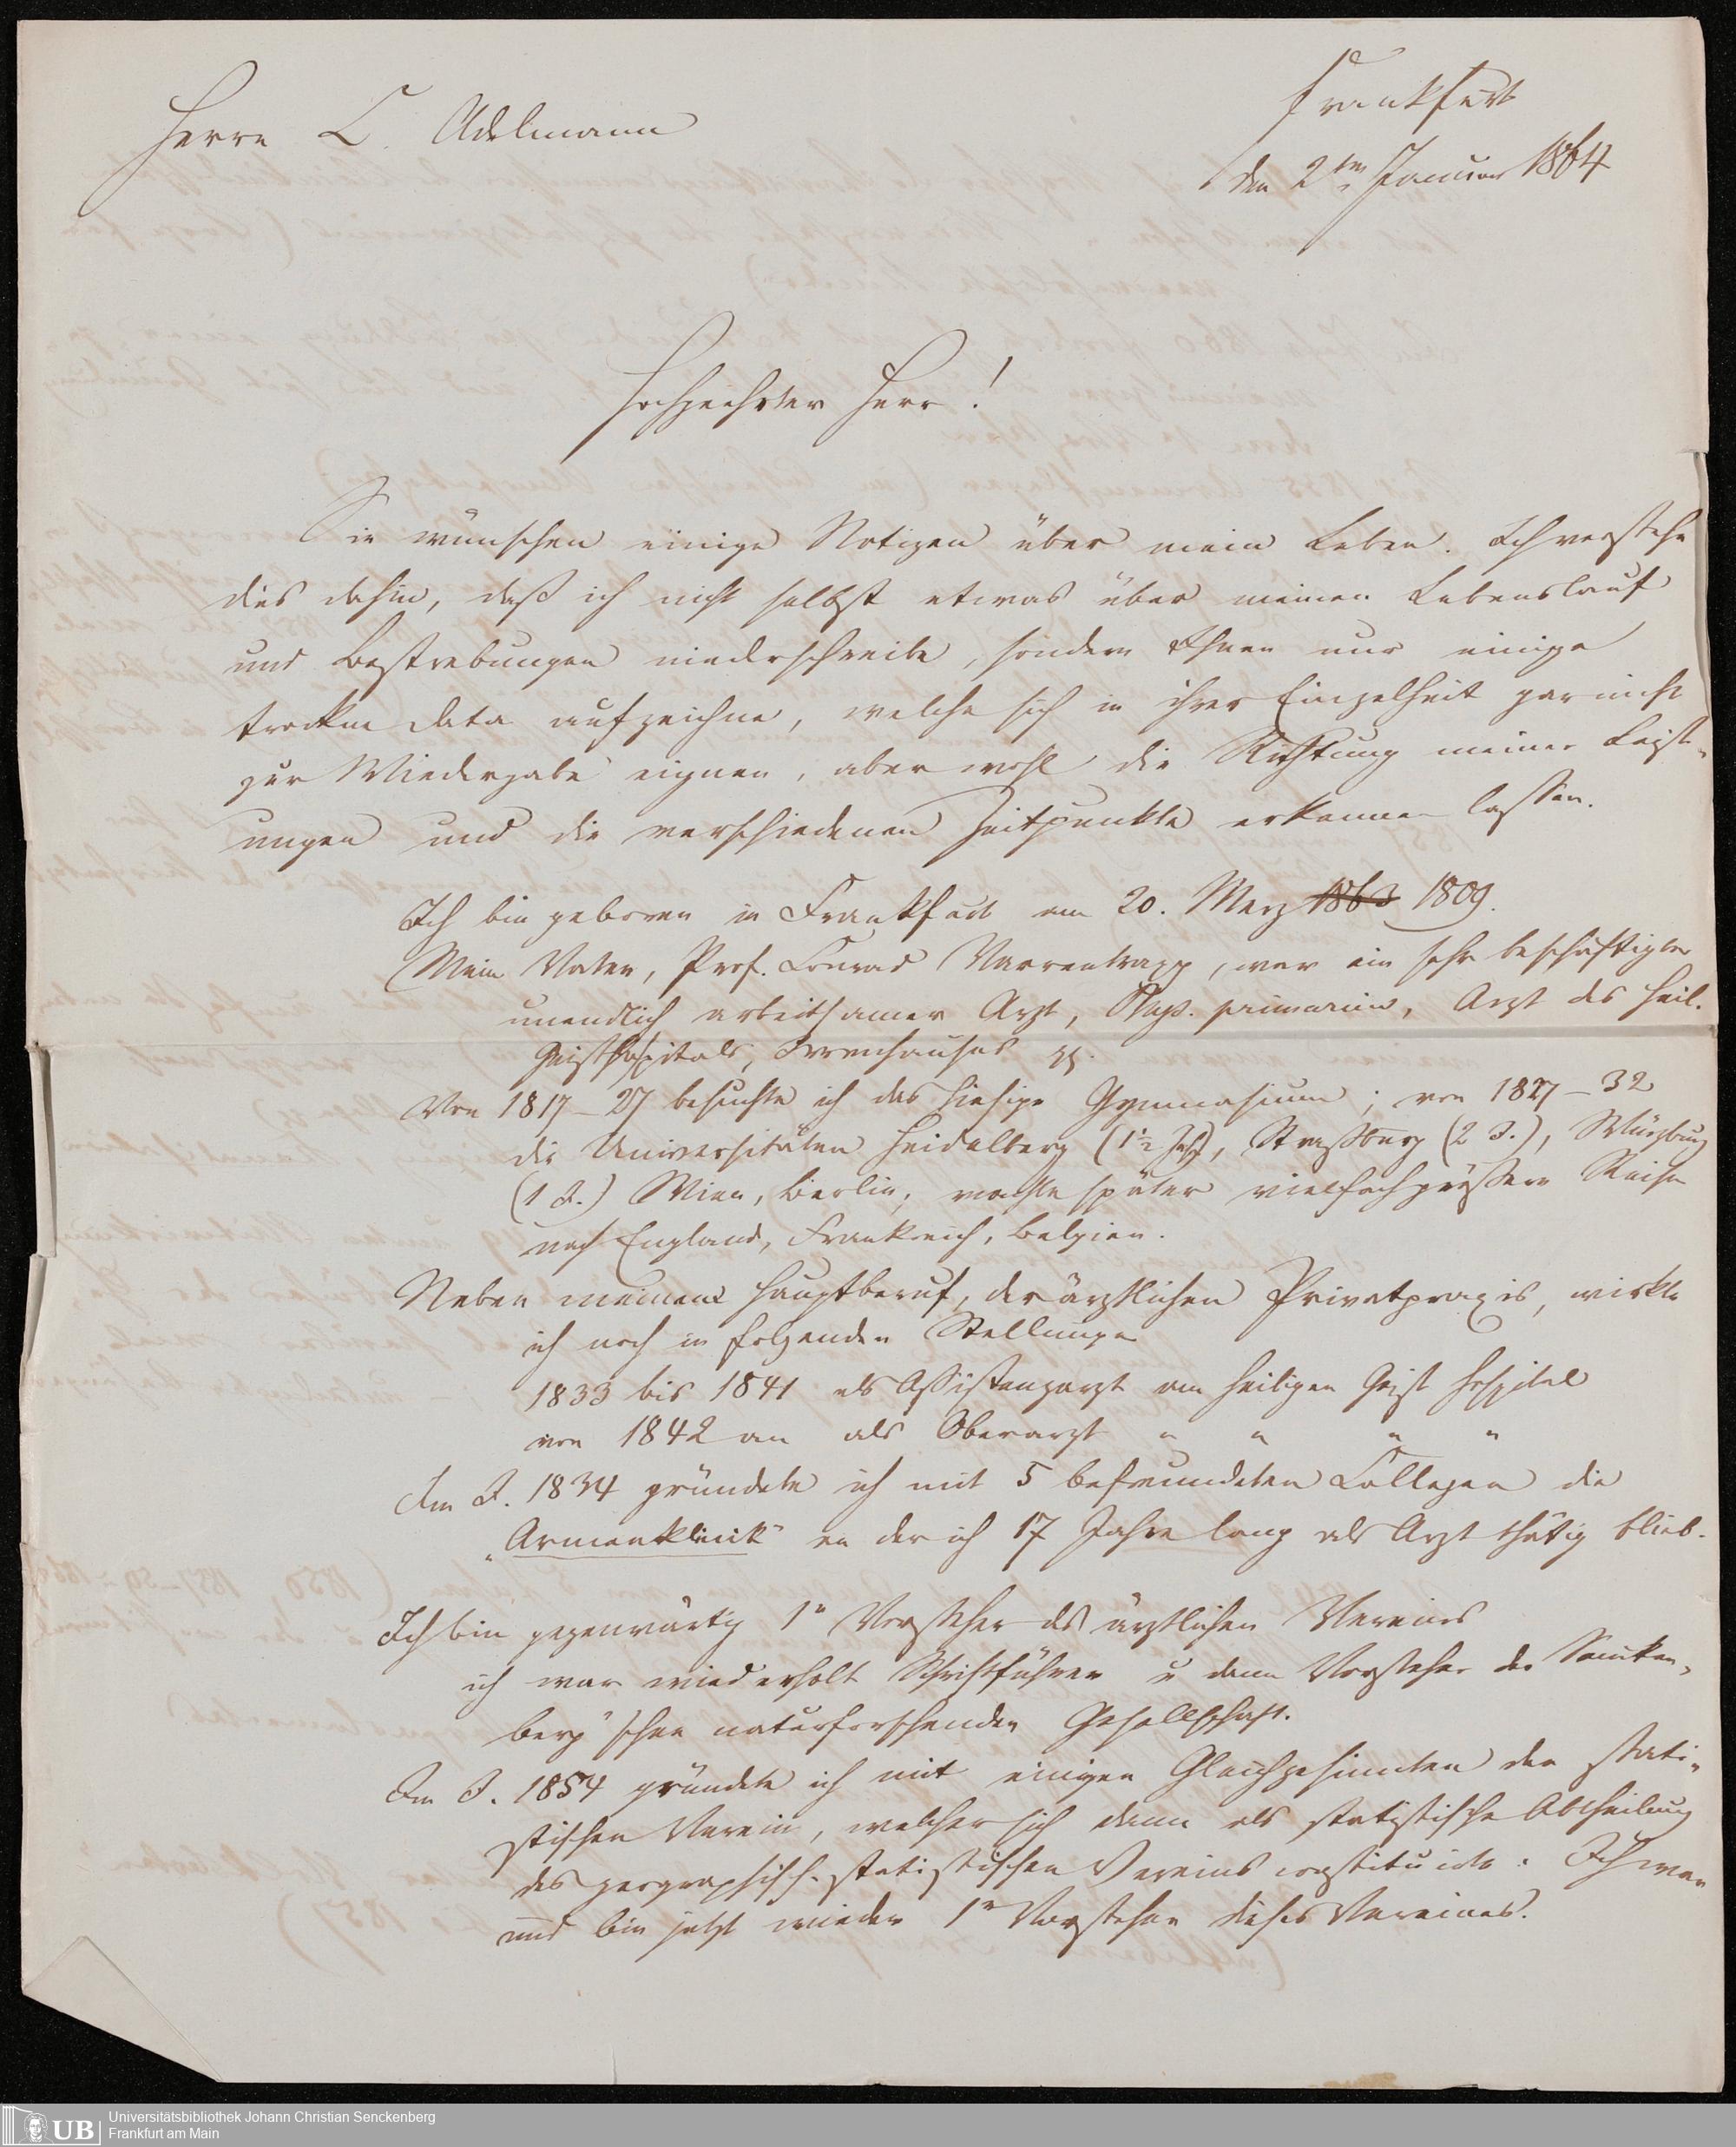 Frankfurt
Herrn C. Adelmann
den 2ten Januar 1864
Hochgeehrter Herr!
Sie wünschen einige Notizen über mein Leben. Ich verstehe
dies dahin, daß ich nicht selbst etwas über meinen Lebenslauf
und Bestrebungen niederschreibe, sondern Ihnen nur einige
trockne Data aufzeichne, welche sich in ihrer Einzelheit gar nicht
zur Wiedergabe eignen, aber wohl die Richtung meiner Leist-
ungen und die verschiedenen Zeitpunkte erkennen lassen.
Ich bin geboren in Frankfurt am 20. Merz 1863 1809.
Mein Vater, Prof. Conrad Varrentrapp, war ein sehr beschäftigter
unendlich arbeitsamer Arzt, Phys. primarius, Arzt des heil.
Geisthospitals, Irrenhauses
Von 1817–27 besuchte ich das hiesige Gymnasium; von 1827–32
die Universitäten Heidelberg (1½ Jahr), Straßburg (2 J.), Würzburg
(1 J.) Wien, Berlin, machte später vielfach größere Reisen
nach England, Frankreich, Belgien.
Neben meinem Hauptberuf, der ärztlichen Privatpraxis, wirkte
ich noch in folgenden Stellungen
1833 bis 1841 als Assistenzarzt am heiligen Geist Hospital
von 1842 an als Oberarzt " " " "
Im J. 1834 gründete ich mit 5 befreundeten Collegen die
„Armenklinik" an der ich 17 Jahre lang als Arzt thätig blieb.
Ich bin gegenwärtig 1r Vorsteher des ärztlichen Vereines
ich war wiederholt Schriftführer u dann Vorsteher der Senken-
berg'schen naturforschenden Gesellschaft.
Im J. 1854 gründete ich mit einigen Gleichgesinnten den stati-
stischen Verein, welcher sich dann als statistische Abtheilung
des geographisch-statistischen Vereins constituirte. Ich war
und bin jetzt wieder 1r Vorsteher dieses Vereines.
UB
Universitätsbibliothek Johann Christian Senckenberg
Frankfurt am Main